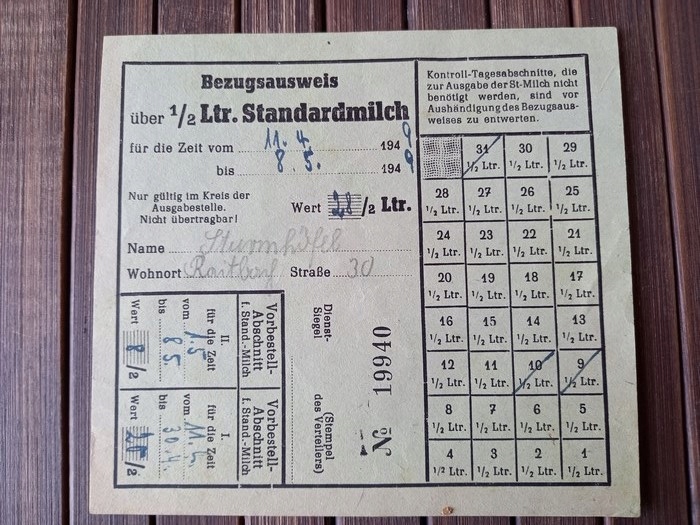 Bezugsausweis
über 1/2 Ltr. Standardmilch
für die Zeit vom 11. 4. 1949
bis 8. 5. 1949
Nur gültig im Kreis der
Ausgabestelle.
Nicht übertragbar!
Wert 28/2 Ltr.
Name Sturmhöfel
Wohnort Raitbach Straße 30
Vorbestell-
Abschnitt
f. Stand.-Milch
II.
für die Zeit
vom 1.5
bis 8 5.
Wert 8/2
Vorbestell-
Abschnitt
f. Stand.-Milch
I.
für die Zeit
vom 11.4.
bis 30.4.
Wert /2
Dienst-
Siegel
(Stempel
des Verteilers)
№ 19940
Kontroll-Tagesabschnitte, die
zur Ausgabe der St-Milch nicht
benötigt werden, sind vor
Aushändigung des Bezugsaus-
weises zu entwerten.
31 30 29
1/2 Ltr. 1/2 Ltr. 1/2 Ltr.
28 27 26 25
1/2 Ltr. 1/2 Ltr. 1/2 Ltr. 1/2 Ltr.
24 23 22 21
1/2 Ltr. 1/2 Ltr. 1/2 Ltr. 1/2 Ltr.
20 19 18 17
1/2 Ltr. 1/2 Ltr. 1/2 Ltr. 1/2 Ltr.
16 15 14 13
1/2 Ltr. 1/2 Ltr. 1/2 Ltr. 1/2 Ltr.
12 11 10 9
1/2 Ltr. 1/2 Ltr. 1/2 Ltr. 1/2 Ltr.
8 7 6 5
1/2 Ltr. 1/2 Ltr. 1/2 Ltr. 1/2 Ltr.
4 3 2 1
1/2 Ltr. 1/2 Ltr. 1/2 Ltr. 1/2 Ltr.